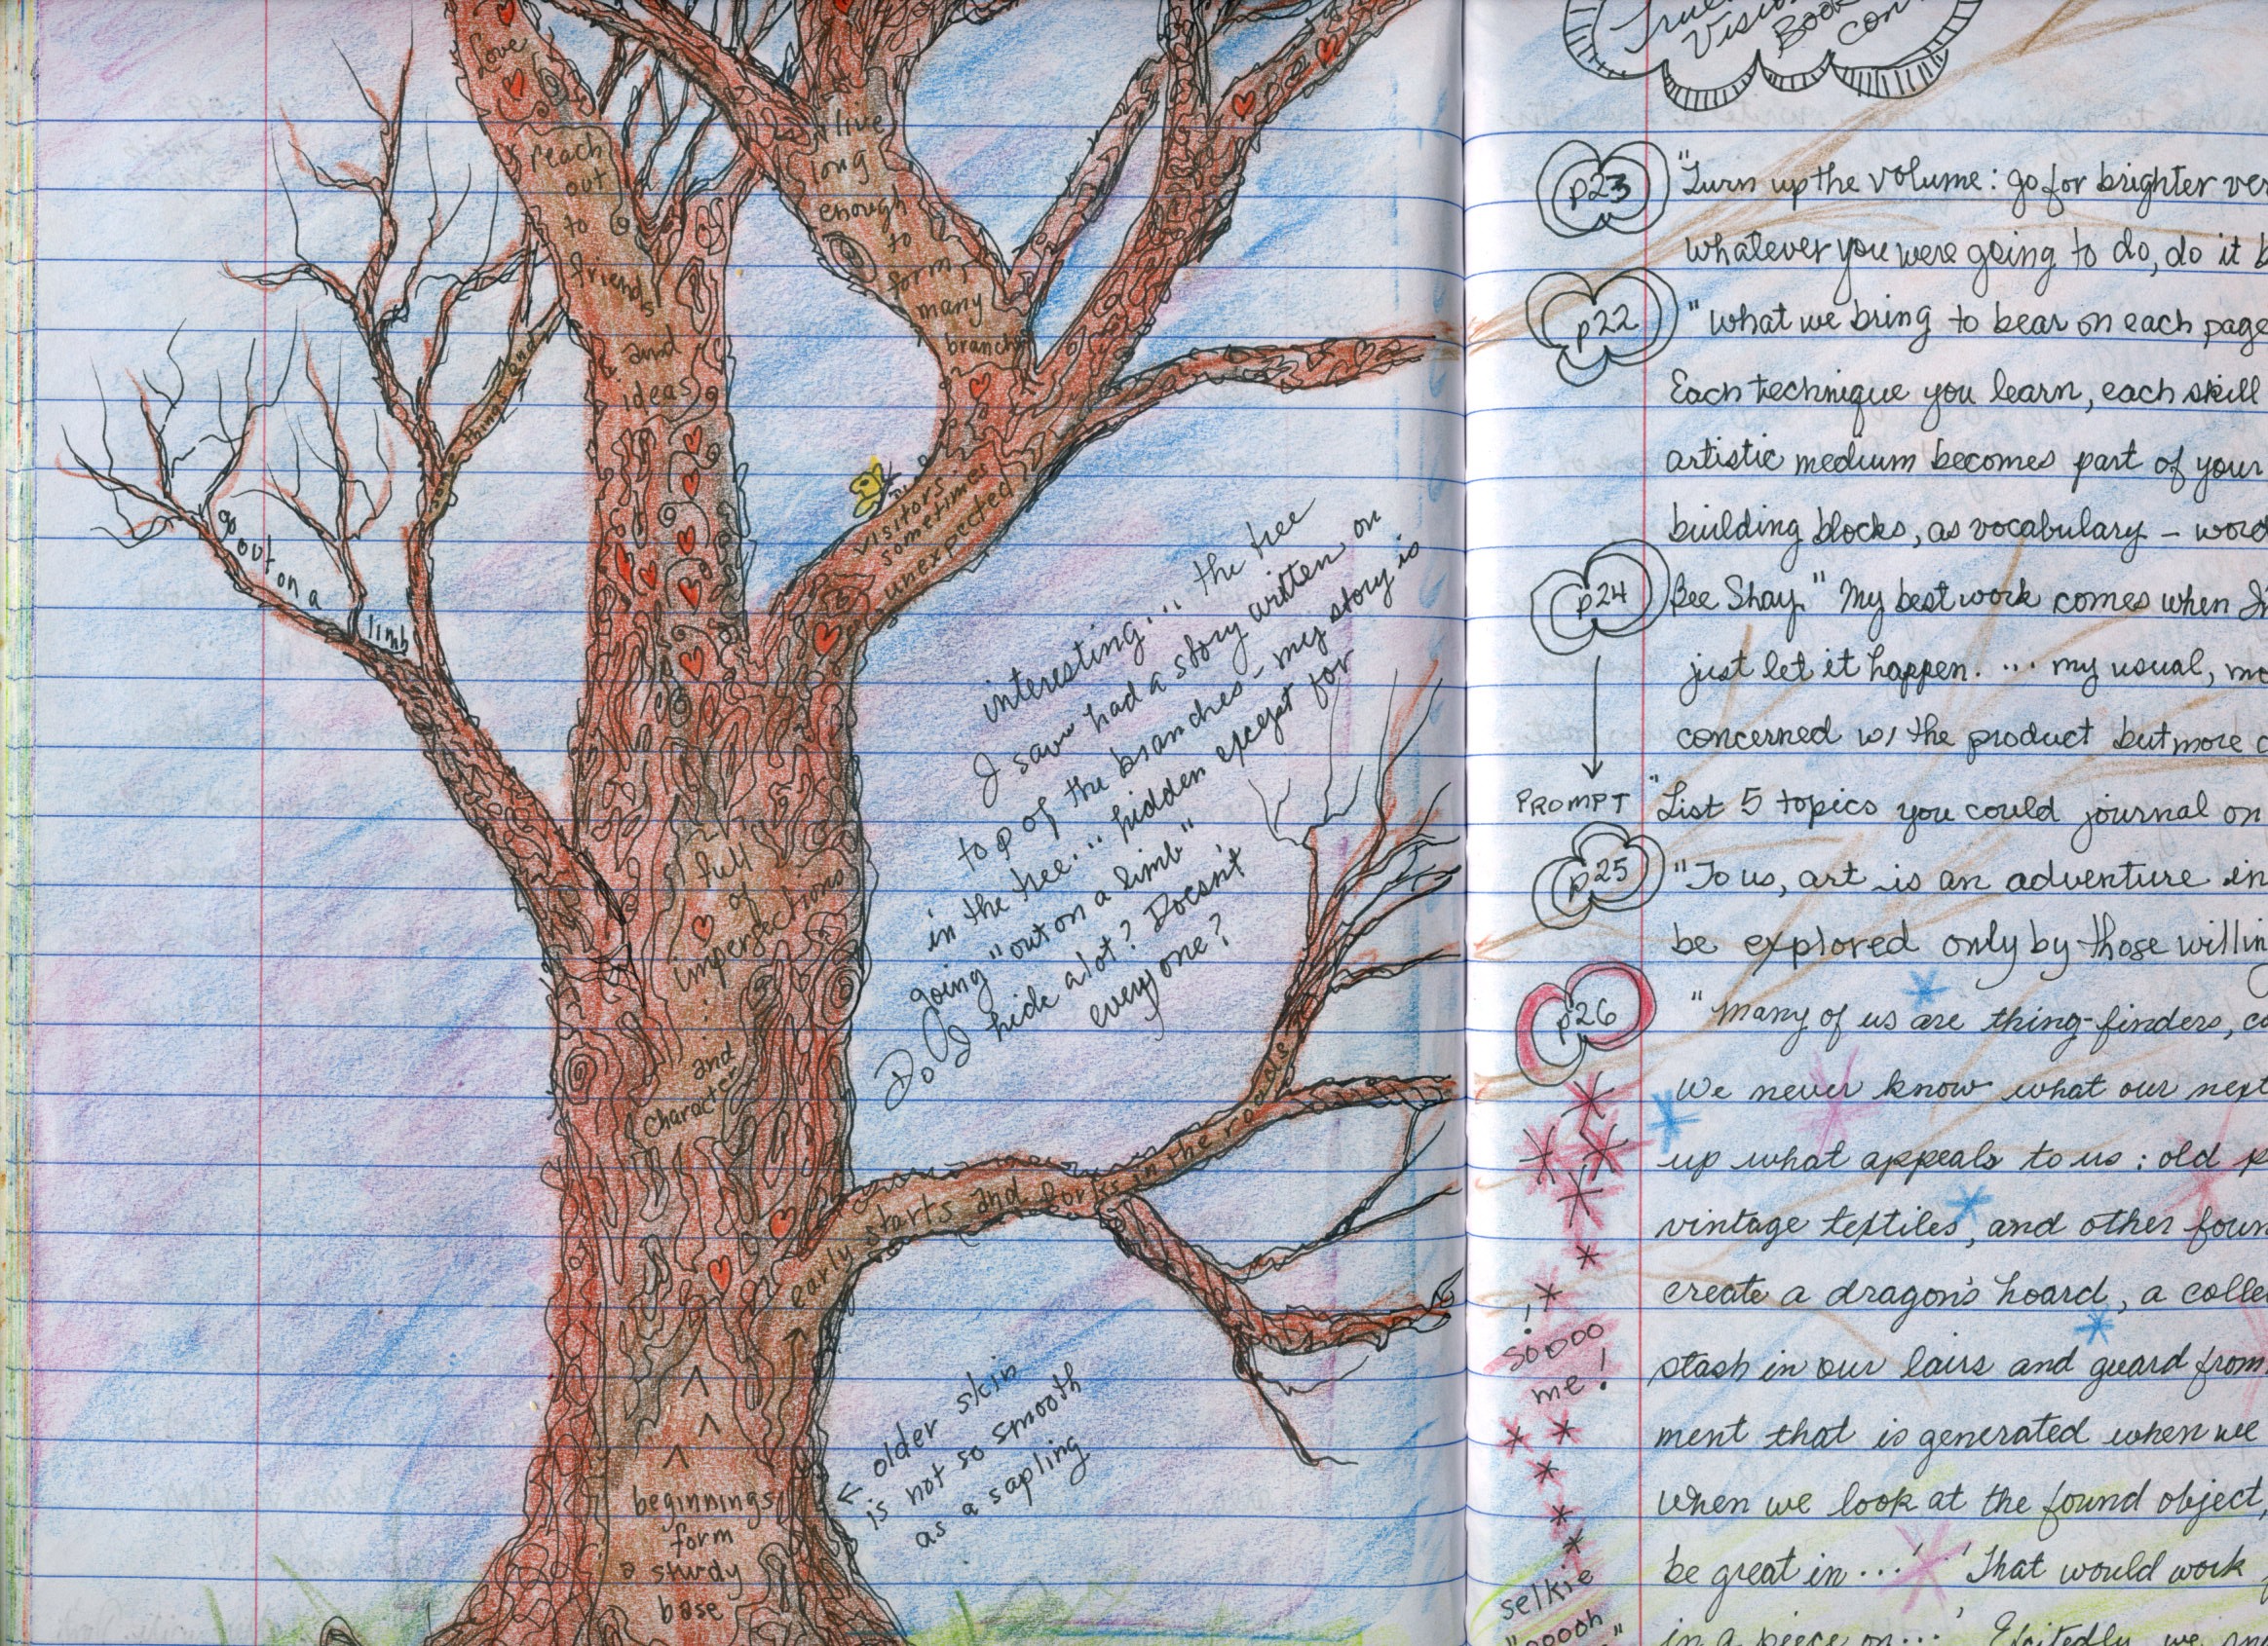 Love
reach
out
to
friends
and
ideas
live
long
enough
to
form
many
branches
some things end
go out on a limb
visitors
sometimes
unexpected
interesting... the tree
I saw had a story written on
top of the branches - my story is
in the tree... hidden except for
going "out on a limb"
Do I hide alot? Doesn't
everyone?
full
of
imperfections
...
and
character
early starts and forks in the roads
older skin
is not so smooth
as a sapling
beginnings
form
a sturdy
base
Visio
Book
Con
p23 "Turn up the volume: go for brighter ver
whatever you were going to do, do it b
p22 "What we bring to bear on each page
Each technique you learn, each skill
artistic medium becomes part of your
building blocks, as vocabulary - word
p24 Bee Shay. "My best work comes when I
just let it happen. ... my usual, mo
concerned w/ the product but more c
PROMPT "List 5 topics you could journal on
p25 "To us, art is an adventure in
be explored only by those willin
p26 "Many of us are thing-finders, co
We never know what our next
up what appeals to us: old p
vintage textiles, and other foun
create a dragon's hoard, a colle
Soooo
me!
stash in our lairs and guard from
ment that is generated when we
when we look at the found object,
be great in...' 'That would work
selkie
"ooooh"
in a piece on...' Excitedly, we